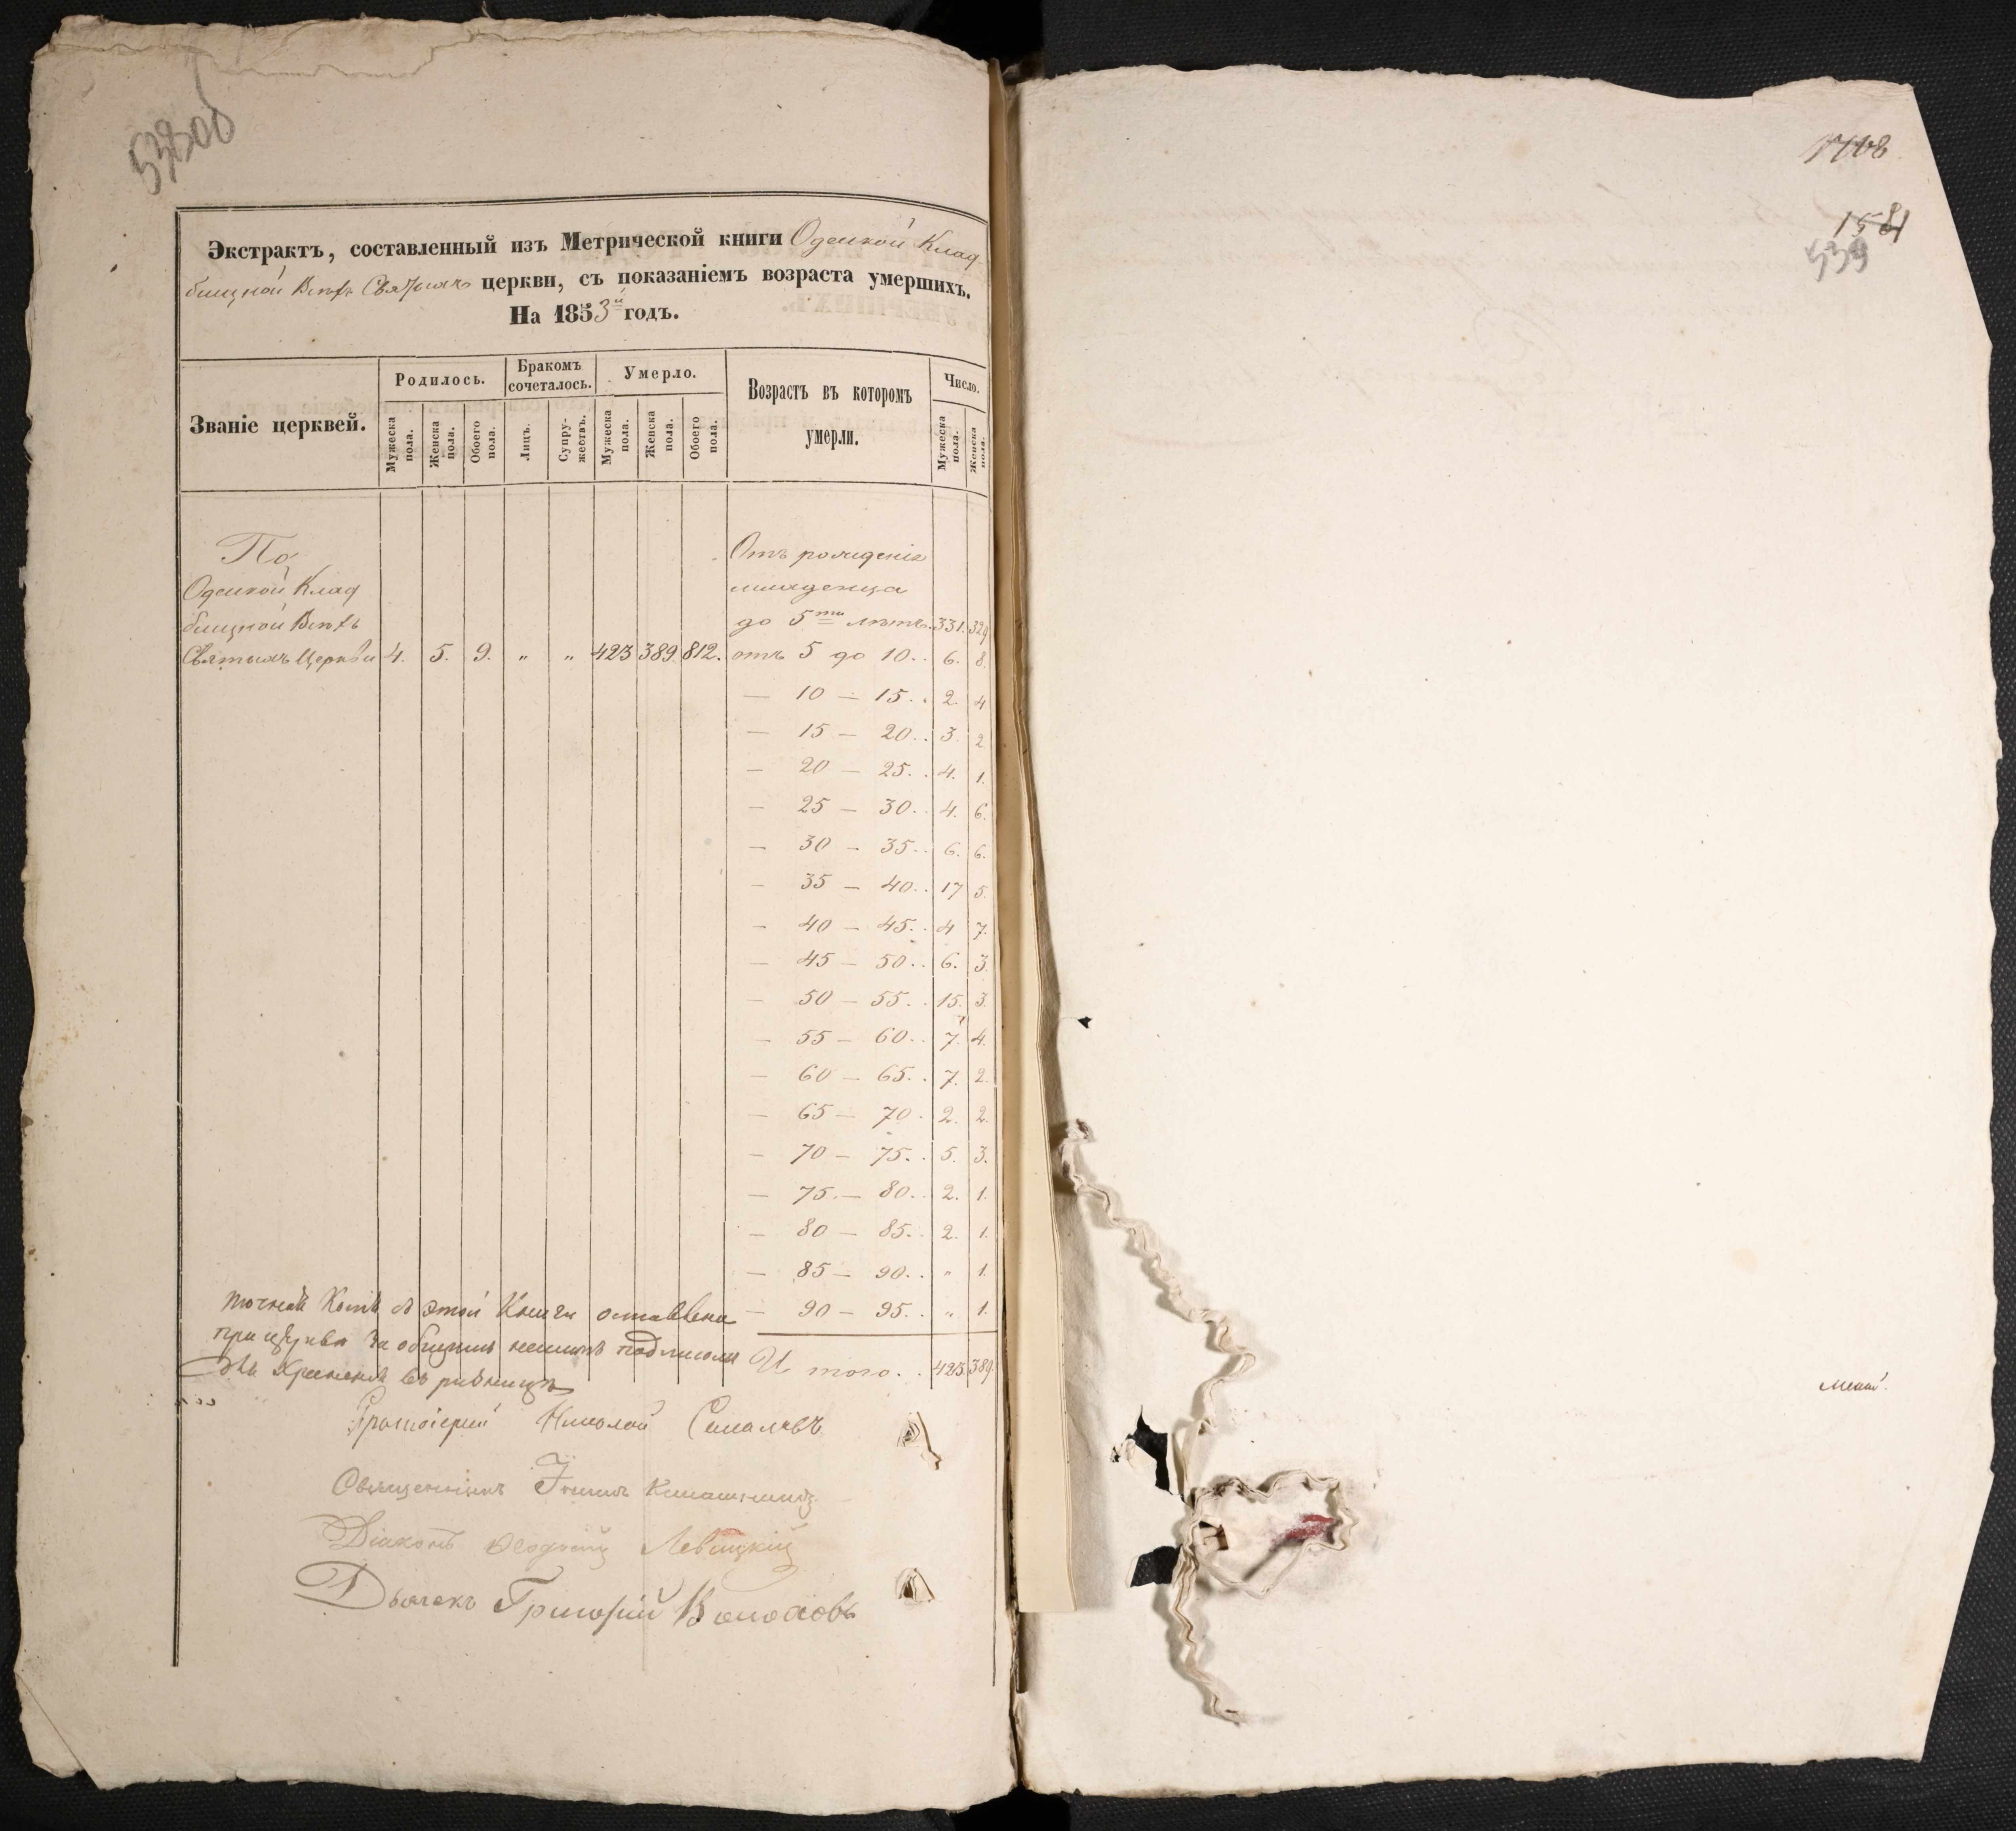 53900
Экстрактъ, составленный изъ Метрической книги Одеской Клад
бищной Всѣхъ Святыхъ церкви, съ показаніемъ возраста умершихъ.
На 1853й годъ.
Званіе церквей.
Родилось.
Бракомъ сочеталось.
Умерло.
Возрастъ въ которомъ умерли.
Число.
Мужеска пола.
Женска пола.
Обоего пола.
Лицъ.
Супру-жествъ.
Мужеска пола.
Женска пола.
Обоего пола.
Мужеска пола.
Женска пола.
По
Одеской Клад
бищной Всѣхъ
Святыхъ Церкви 4. 5. 9. „ „ 423 389 812.
Отъ рожденія
младенца
до 5ти лѣтъ. 331. 329
отъ 5 до 10.. 6. 8.
— 10 — 15.. 2. 4
— 15 — 20.. 3. 2
— 20 — 25.. 4. 1.
— 25 — 30.. 4. 6.
— 30 — 35.. 6. 6.
— 35 — 40.. 17 5.
— 40 — 45.. 4 7.
— 45 — 50.. 6. 3.
— 50 — 55.. 15. 3.
— 55 — 60.. 7. 4.
— 60 — 65.. 7. 2.
— 65 — 70. 2. 2.
— 70 — 75.. 5. 3.
— 75. — 80.. 2. 1.
— 80 — 85.. 2. 1.
— 85 — 90.. „ 1.
— 90 — 95.. „ 1.
И того.. 423 389
Точная Копія съ этой Книги оставлена
при церкви за общимъ нашимъ подписомъ
для храненія въ ризницѣ
Протоіерей Николай
Священникъ
Діаконъ Левицкій
Дьячекъ Григорій
1581
539